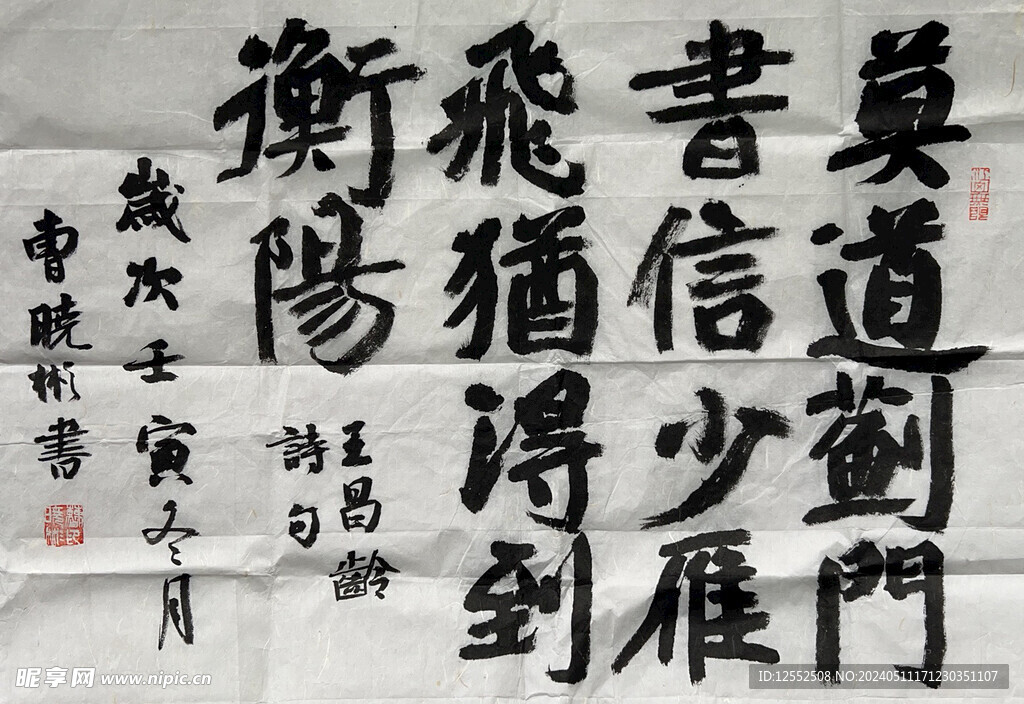 莫道薊門
書信少雁
飛猶得到
衡陽
王昌齡
詩句
歲次壬寅冬月
曹曉彬書
昵享网 www.nipic.cn
ID:12552508 NO:20240511171230351107